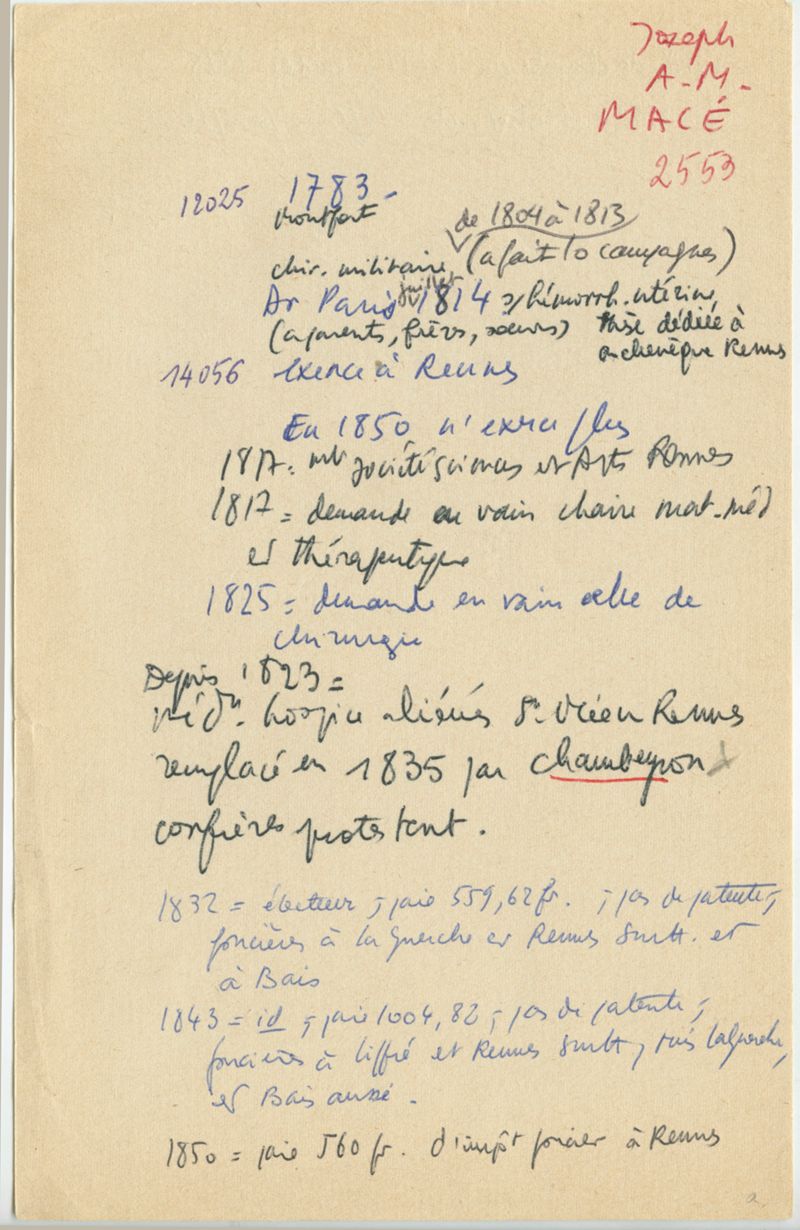 Joseph
A-M.
MACÉ
2553
12025 1783-
Montfort
de 1804 à 1813
chir. militaire (a fait 10 campagnes)
juillet
Dr Paris 1814 = hémorrh. utérine,
(à parents, frères, soeurs) thèse dédiée à
archevêque Rennes
14056 exerce à Rennes
En 1850 n'exerce plus
1817 = mb société sciences et Arts Rennes
1817 = demande en vain chaire mat-méd
et thérapeutique
1825 = demande en vain celle de
chirurgie
Depuis 1823 =
méd. hospice aliénés St Méen Rennes
remplacé en 1835 par Chambeyron
confrères protestent.
1832 = électeur ; paie 559,62 fr. ; pas de patente ;
foncières à la Guerche et Rennes surtt. et
à Bais
1843 = id ; paie 1004,82 ; pas de patente ;
foncières à Liffré et Rennes surtt, puis la Guerche,
et Bais aussi.
1850 = paie 560 fr. d'impôt foncier à Rennes